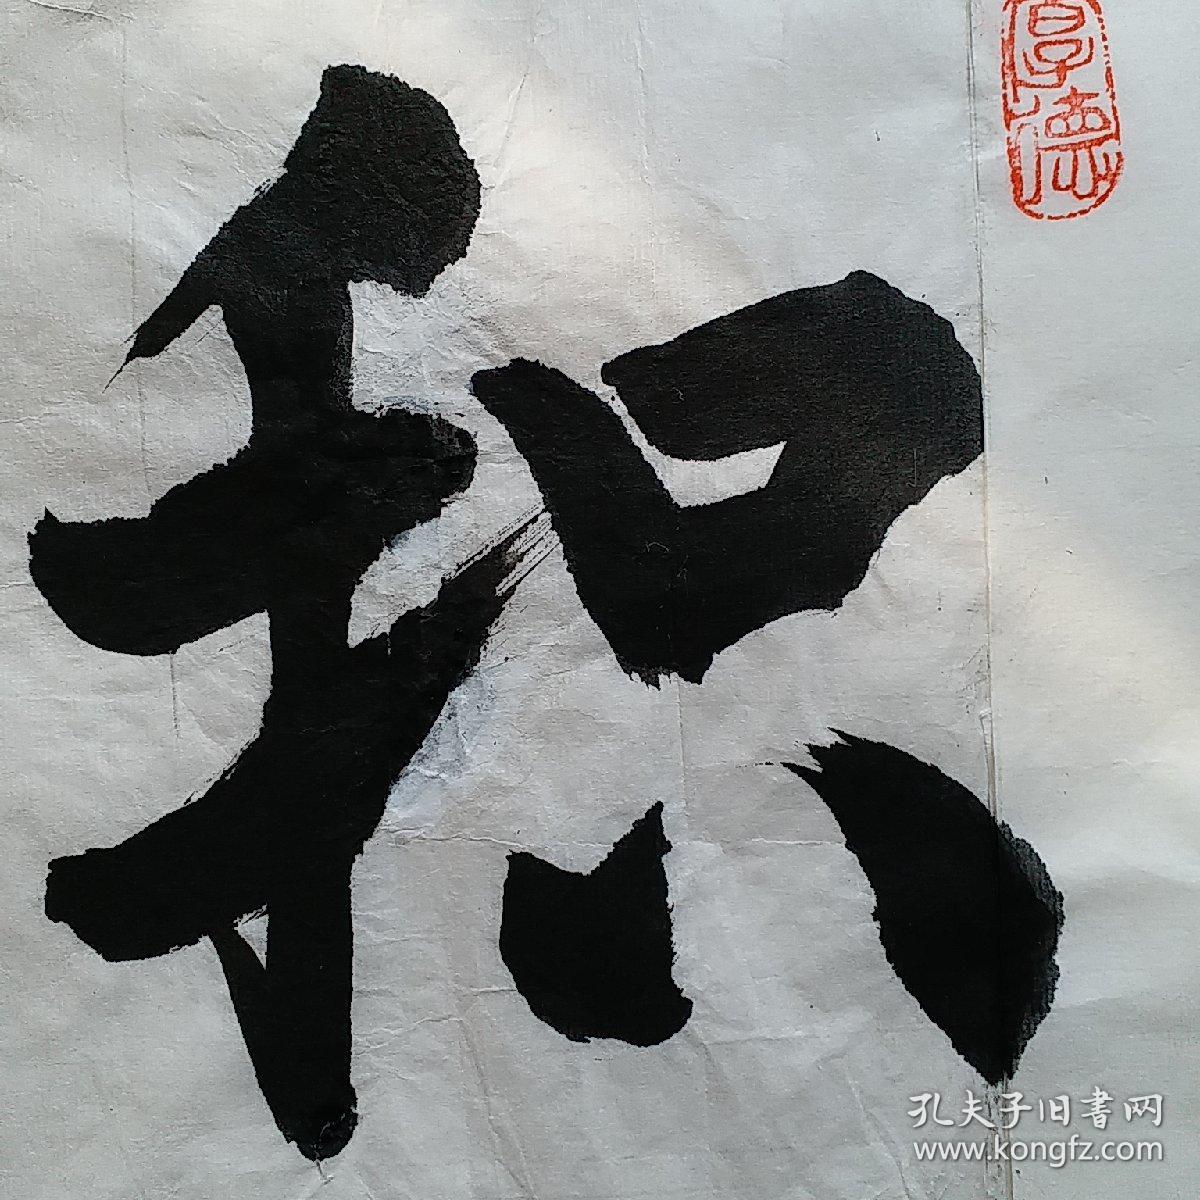 厚德
积
孔夫子旧書网
www.kongfz.com